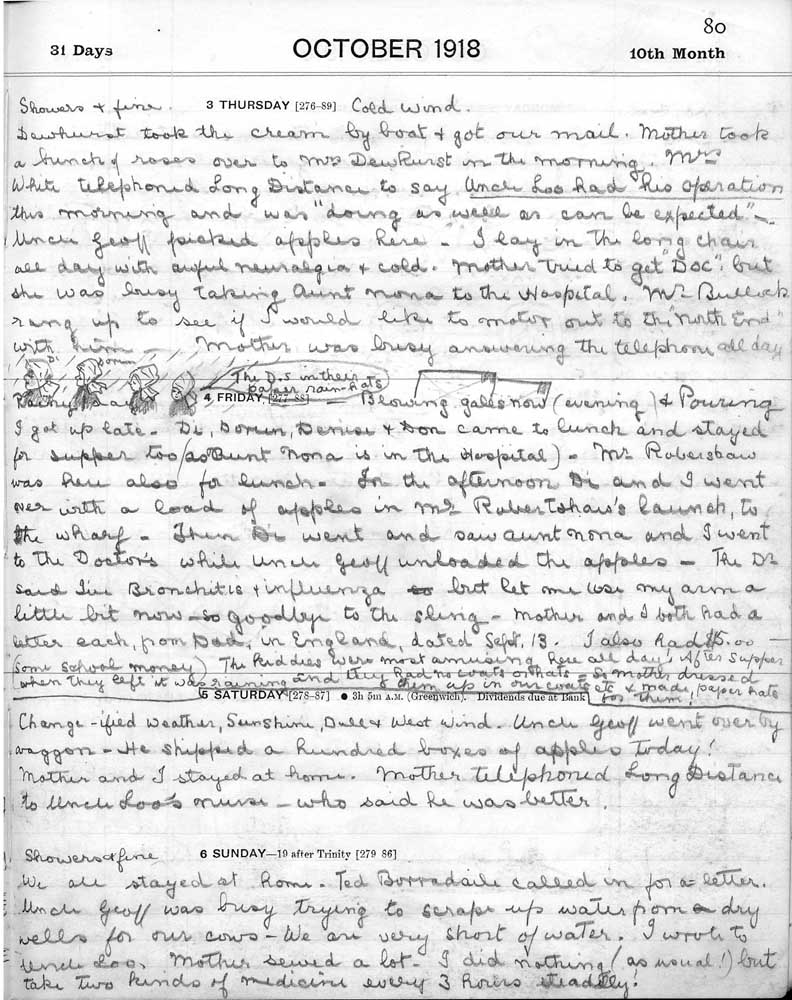 80
31 Days OCTOBER 1918 10th Month
Showers & fine. 3 THURSDAY [276-89] Cold wind.
Dewhurst took the cream by boat & got our mail. Mother took
a bunch of roses over to Mrs Dewhurst in the morning. Mrs
White telephoned Long Distance to say Uncle Loo had his operation
this morning and was "doing as well as can be expected" -
Uncle Geoff picked apples here - I lay in the long chair
all day with awful neuralgia & cold. Mother tried to get "Doc". but
she was busy taking Aunt Nona to the Hospital. Mr Bullock
rang up to see if I would like to motor out to the "North End"
with him - Mother was busy answering the telephone all day
Di. Doreen
The D.S in their
paper rain-hats
4 FRIDAY [277-88] - Blowing gales now (evening) & Pouring
I got up late - Di, Doreen, Denise & Don came to lunch and stayed
for supper too (as Aunt Nona is in the Hospital) - Mr Robertshaw
was here also for lunch - In the afternoon Di and I went
over with a load of apples in Mr Robertshaw's launch, to
the wharf - Then Di went and saw Aunt Nona and I went
to the Doctor's while Uncle Geoff unloaded the apples - The Dr
said I've Bronchitis & influenza but let me use my arm a
little bit now - so goodbye to the sling - Mother and I both had a
letter each, from Dad, in England, dated Sept, 13. I also had $5.00 -
(some school money) The kiddies were most amusing here all day! After supper
when they left it was raining and they had no coats or hats - so Mother dressed
them up in our coats etc & made paper hats
for them!
5 SATURDAY [278-87] ● 3h 5m A.M. (Greenwich). Dividends due at Bank
Change-ified weather, Sunshine, Dull & West Wind. Uncle Geoff went over by
waggon - He shipped a hundred boxes of apples today!
Mother and I stayed at home. Mother telephoned Long Distance
to Uncle Loo's nurse - who said he was better.
Showers & fine 6 SUNDAY—19 after Trinity [279-86]
We all stayed at home. Ted Borradaile called in for a letter.
Uncle Geoff was busy trying to scrape up water from a dry
wells for our cows - We are very short of water. I wrote to
Uncle Loo. Mother sewed a lot - I did nothing (as usual!) but
take two kinds of medicine every 3 hours steadily!